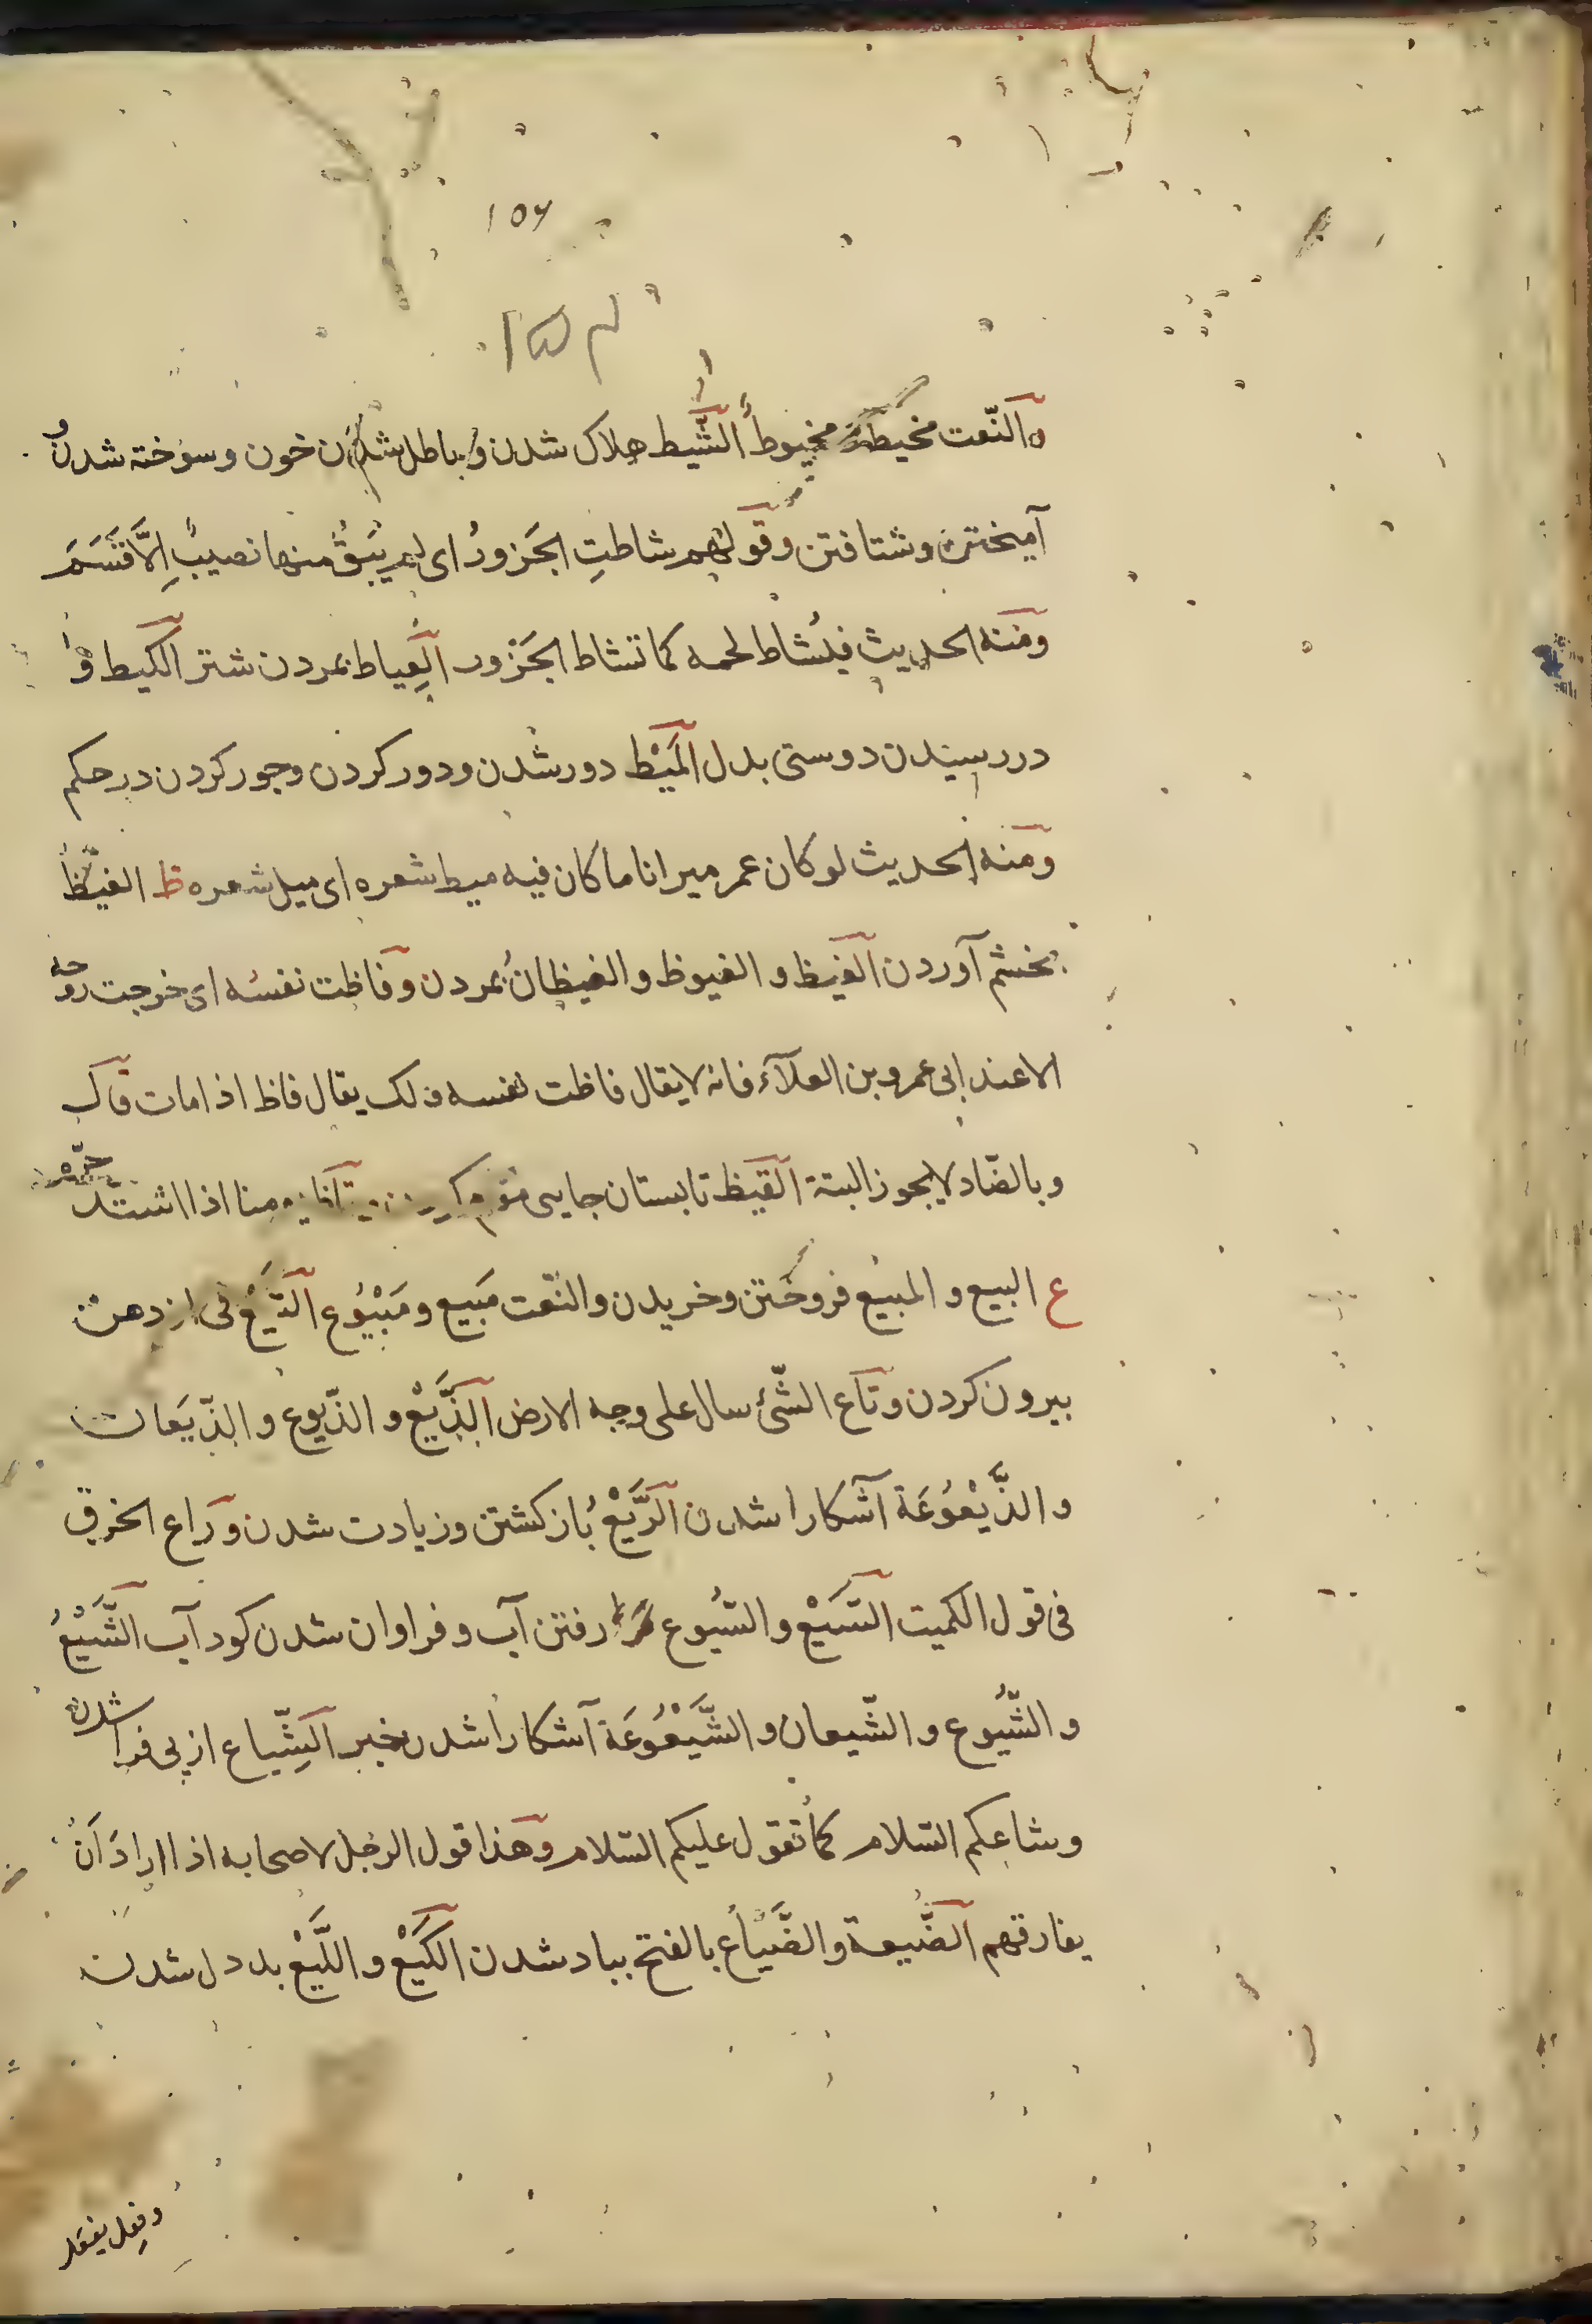 ۱۵۶
والنّعت مخیط و مخیوط الشَّیط هلاک شدن و باطل شدن خون و سوخته شدن و
آمیختن و شتافتن و قولهم شاطتِ الجَزورُ ای لم یَبقَ منها نصیبُ اِلَّا قُسَّمَ
ومنه الحدیث فیُشاط لحمه کما تشاط الجَزور العِیاط بمردن شتر الکیط و
در رسیدن دوستی بدل المَیْط دور شدن و دور کردن و جور کردن در حکم
ومنه الحدیث لو کان عمر میزانا ما کان فیه میط شعره ای میل شعره ظ الغیظ
بخشم آوردن الفیظ و الفیوظ و الفیظانُ بمردن و فاظت نفسُه ای خرجت روحه
الا عند ابی عمرو بن العلآء فانه لا یقال فاظت نفسه ولک یقال فاظ اذا مات قال
وبالضّاد لا یجوز البتة القیظ تابستان جایی منا اذا اشتد حرّه
ع البیع و المبیع فروختن و خریدن والنّعت مَبیع و مَبْیُوع التَّیْع قی از دهن
بیرون کردن و تاع الشّیٔ سال علی وجه الارض الذَّیْع و الذّیوع و الذّیَعان
و الذَّیْعُوعَة آشکارا شدن الرَّیْعُ باز کشتن و زیادت شدن و راع الخرق
فی قول الکمیت السَّیْع و السُّیوع رفتن آب و فراوان شدن کود آب الشَّیْعُ
و الشُّیوع و الشّیعان و الشَّیْعُوعَة آشکارا شدن خبر الشِّیاع از پی فرا شدن
و شاعکم السّلام کما تقول علیکم السّلام و هذا قول الرجُل لاصحابه اذا ارادَ اَنْ
یفارقهم الضَّیعة و الضَّیاع بالفتح بباد شدن الکَیْع و اللَّیْع بد دل شدن
وفعل یفعل